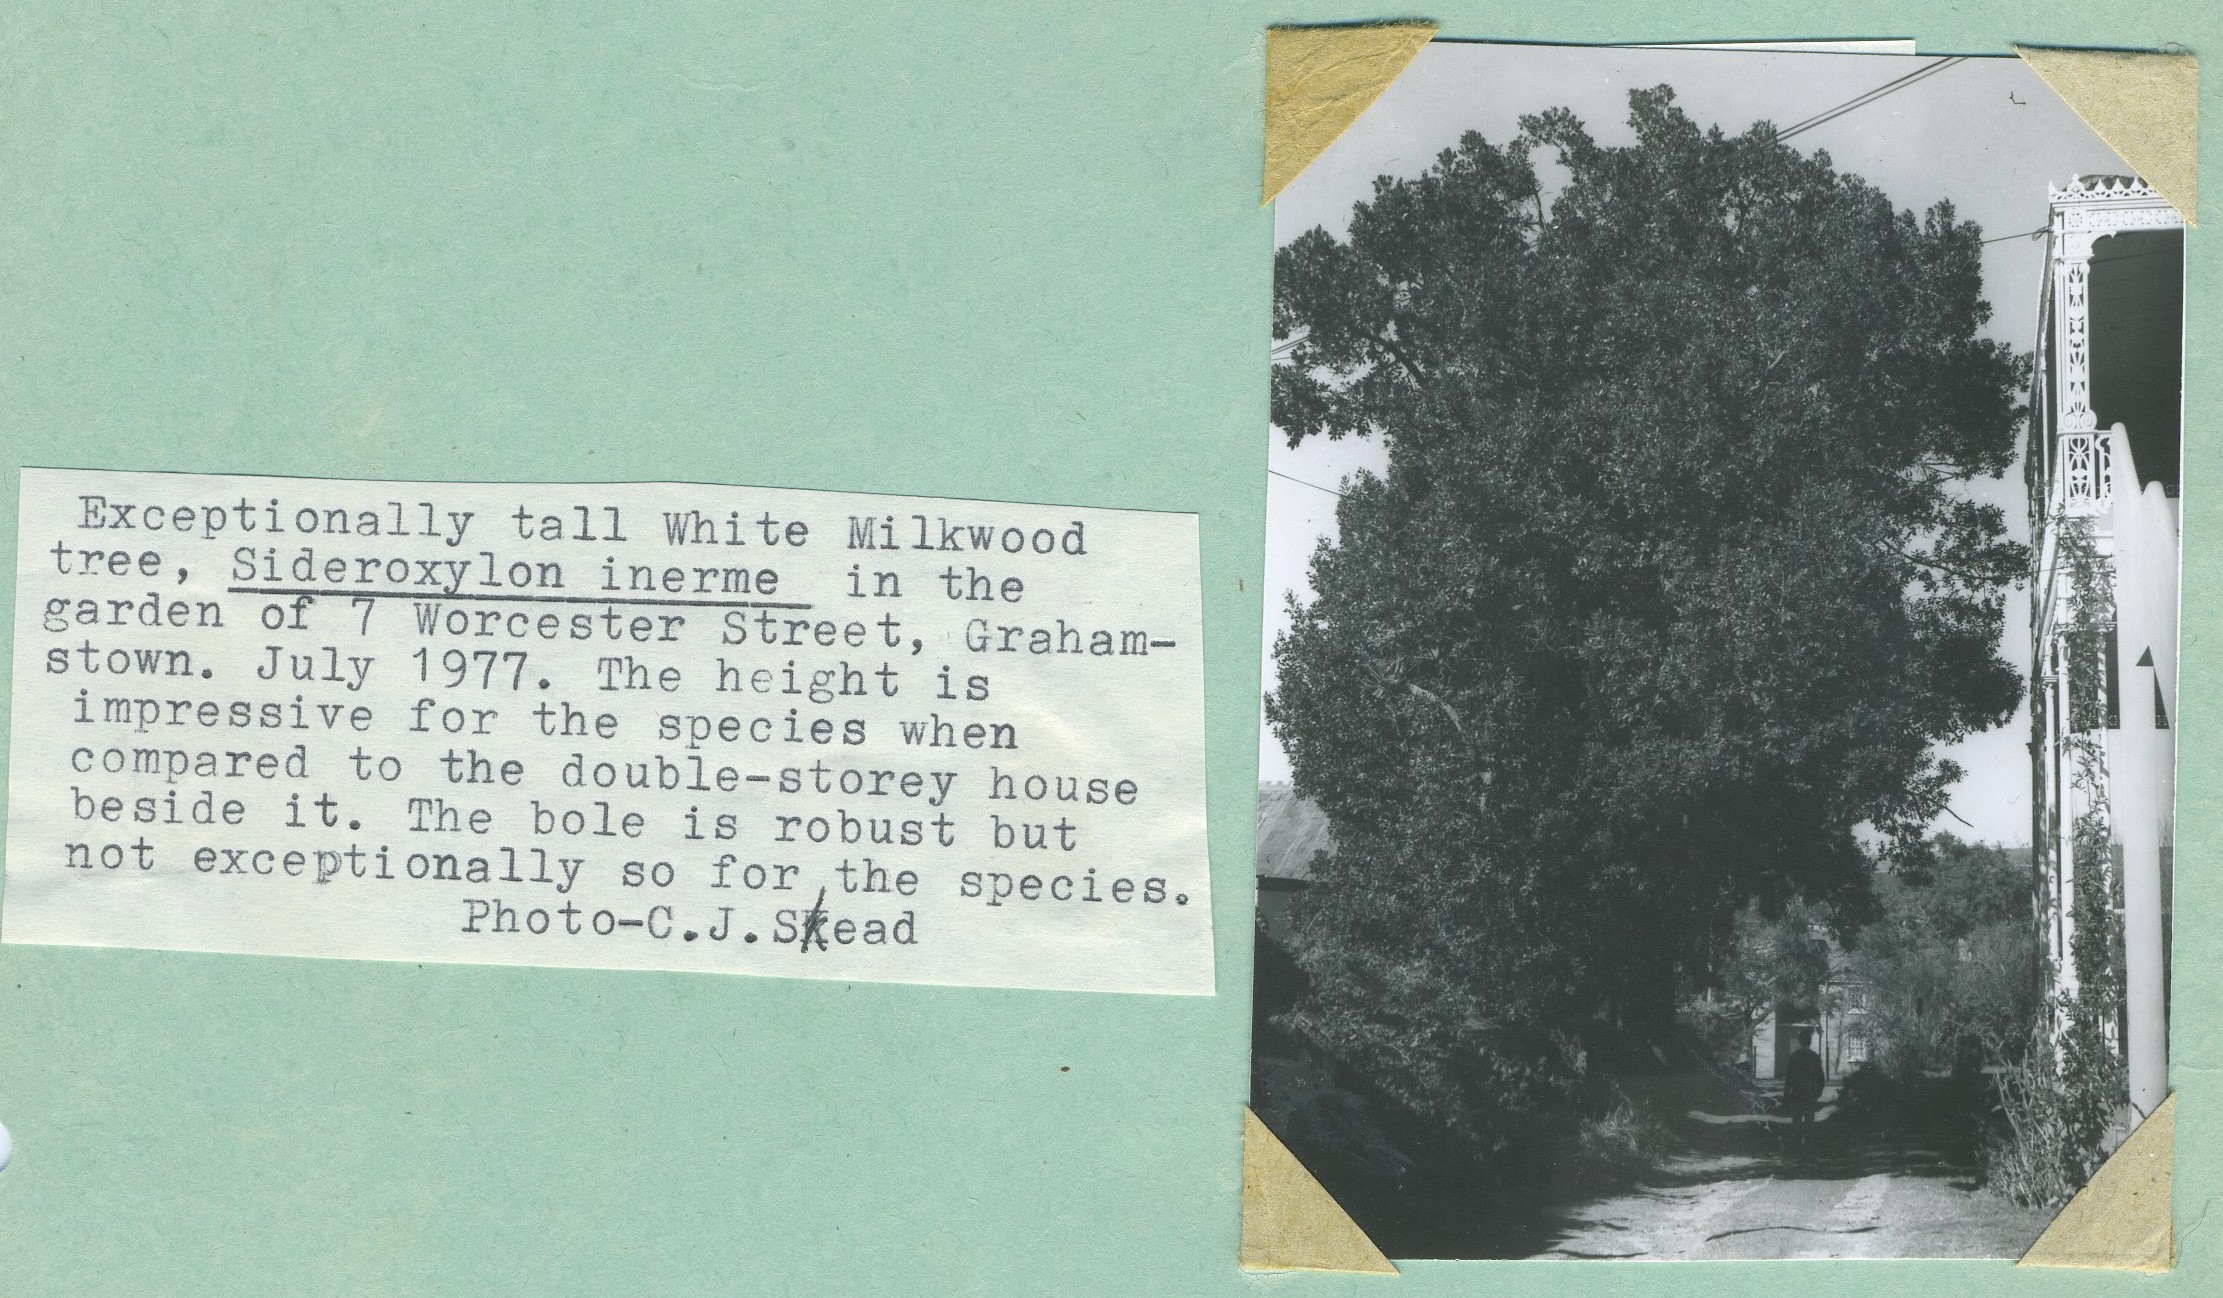 Exceptionally tall White Milkwood
tree, Sideroxylon inerme in the
garden of 7 Worcester Street, Graham-
stown. July 1977. The height is
impressive for the species when
compared to the double-storey house
beside it. The bole is robust but
not exceptionally so for the species.
Photo-C.J.Skead